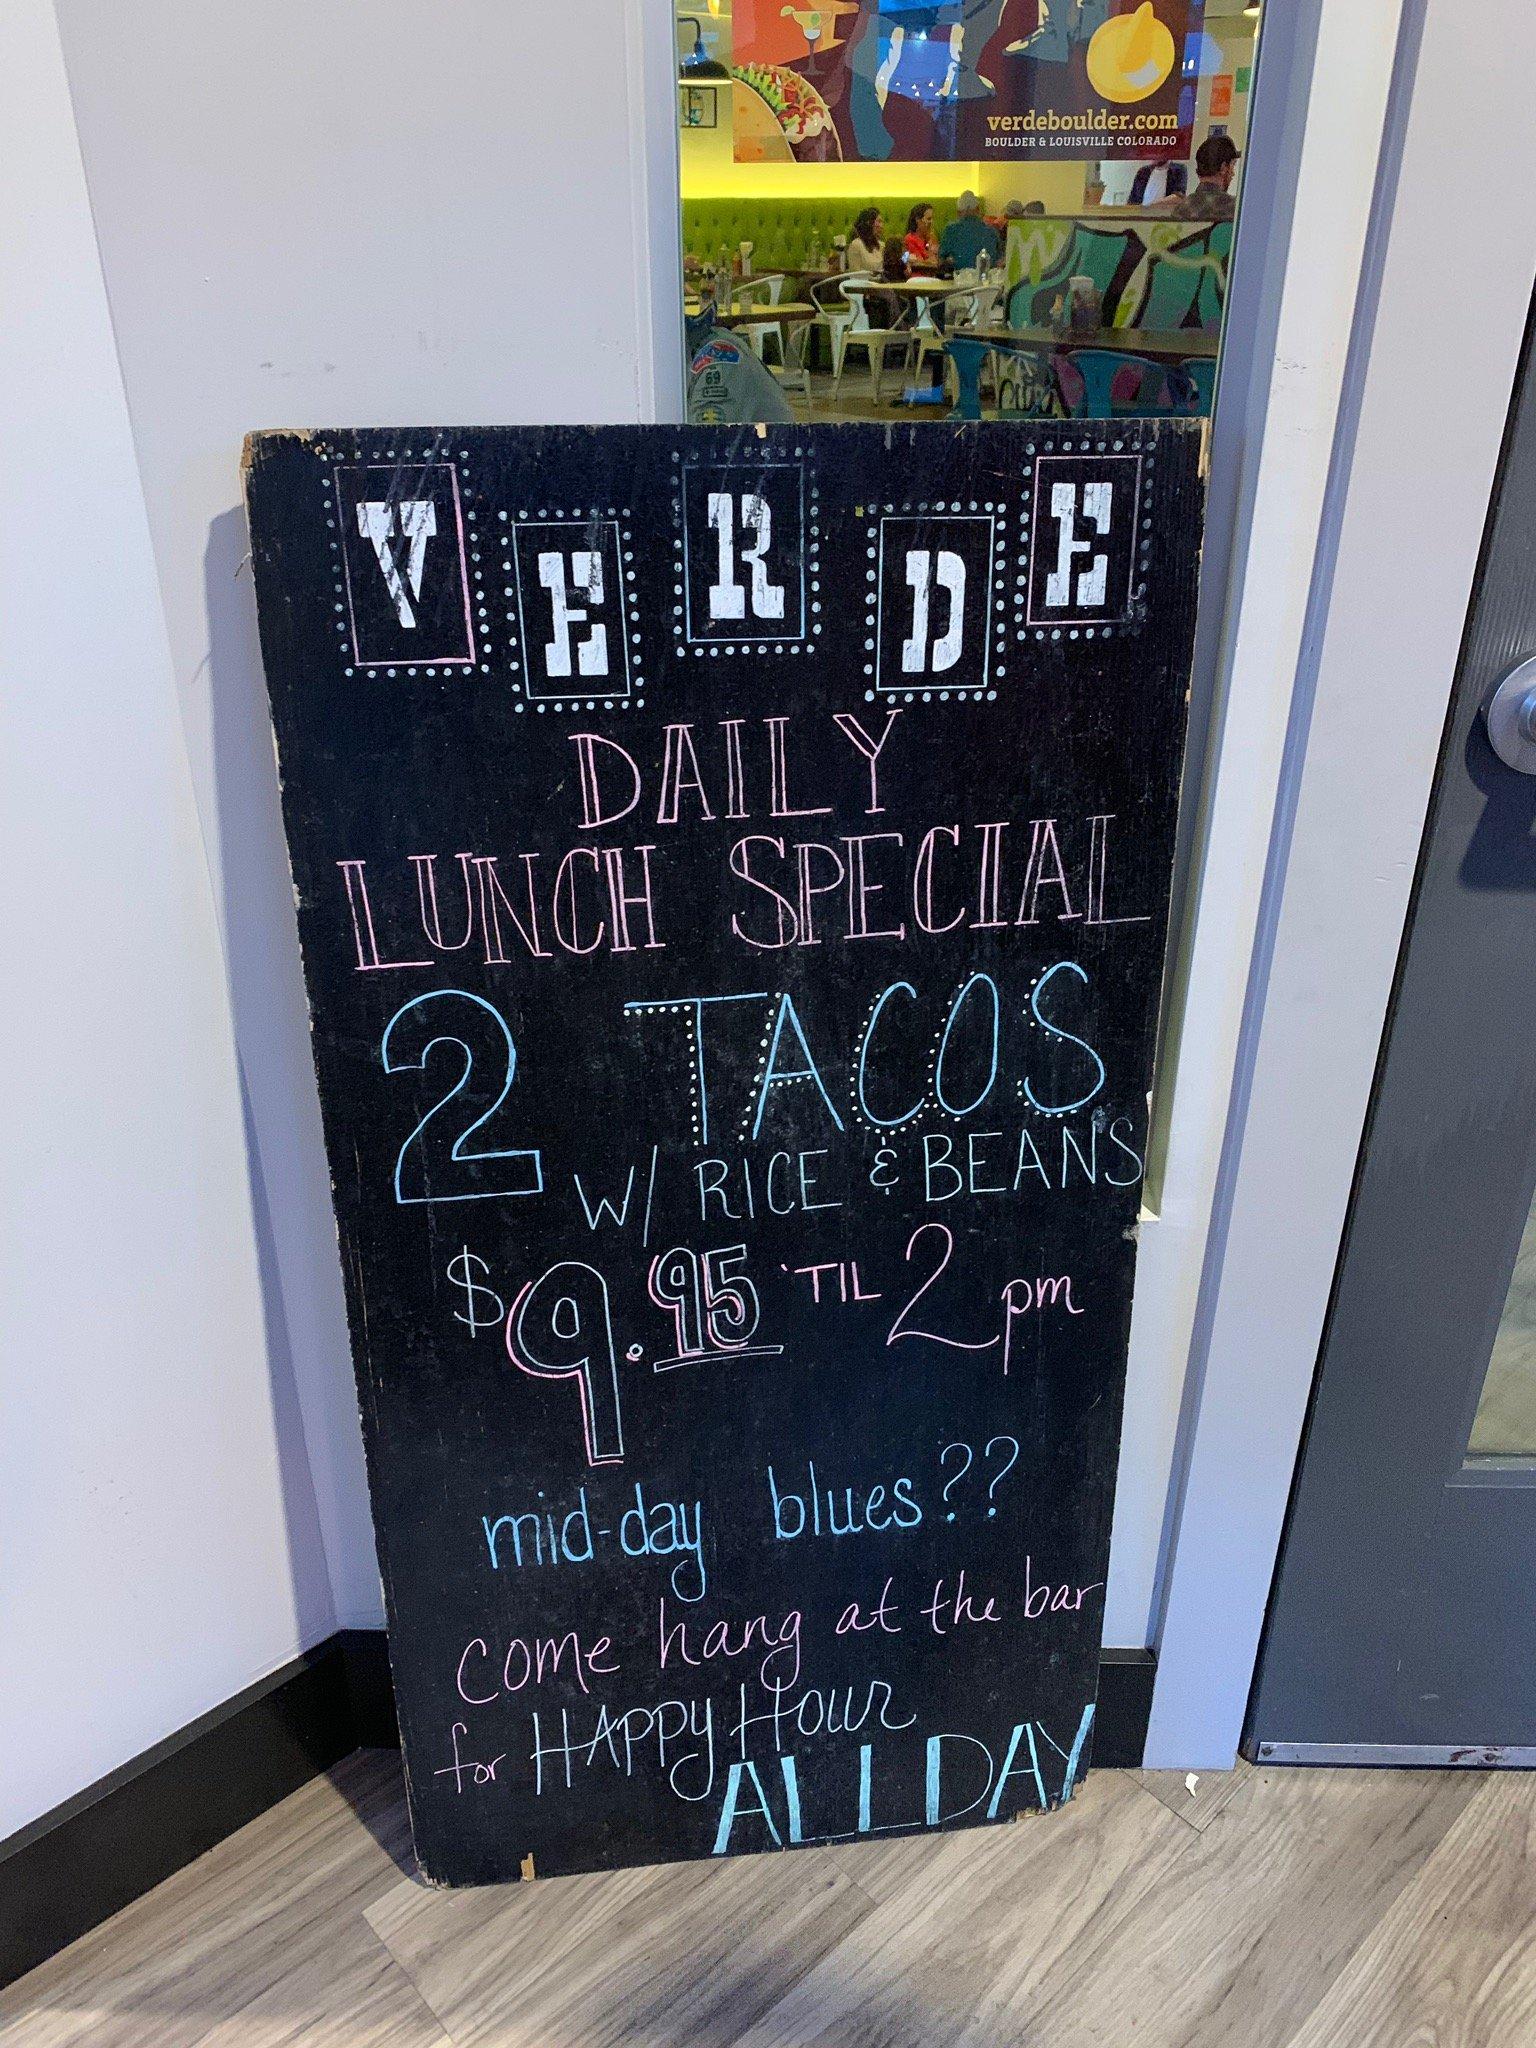 verdeboulder.com
BOULDER & LOUISVILLE COLORADO
69
VERDE
DAILY
LUNCH SPECIAL
2 TACOS
W/ RICE & BEANS
$9.95 'TIL 2 pm
mid-day blues??
come hang at the bar
for HAPPY HOUR
ALL DAY